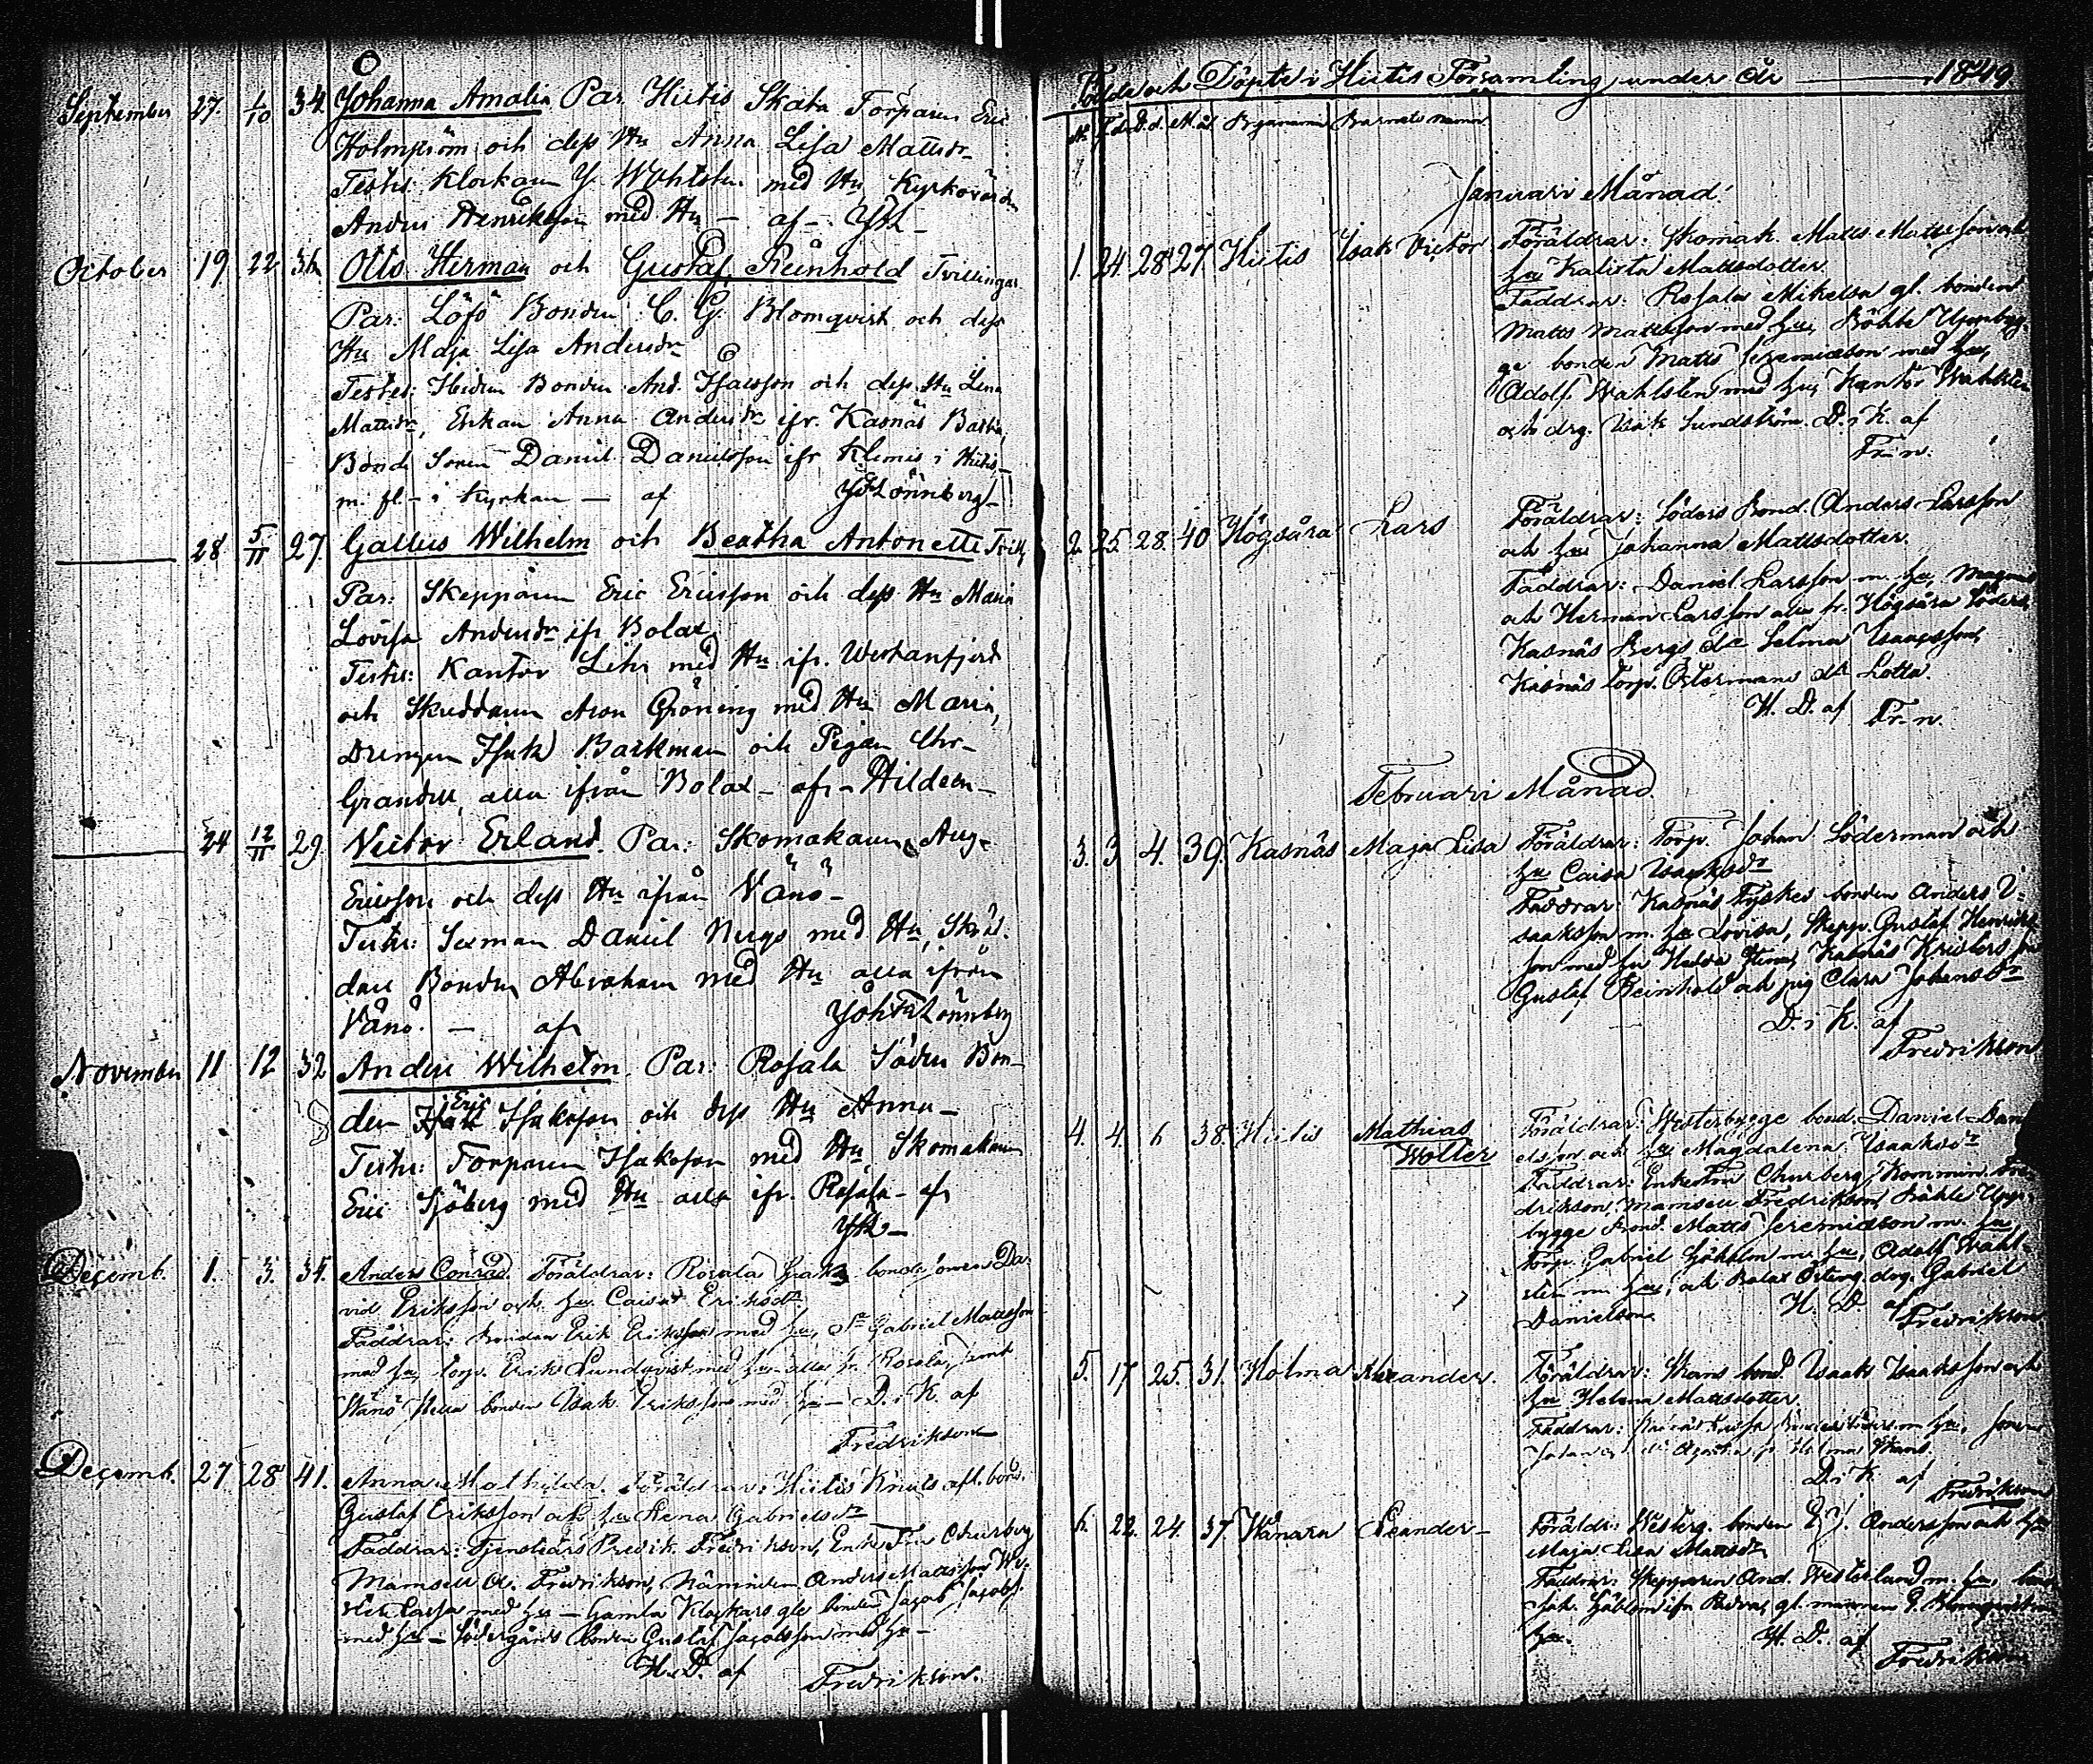 September 27. 1/10 34 Johanna Amalia Par. Hiitis Skata Torparen Eric
Holmström och dess Hu Anna Lisa Mattsdr
Testes: Klockaren J. Wahlsten med Hu, Kyrkovärden
Anders Henriksson med Hu – af –
October 19. 22 36 Otto Herman och Gustaf Reinhold Tvillingar
Par: Löfö Bonden C. G. Blomqvist och dess
Hu Maja Lisa Andersdr
Testes: Bonden And. Isacsson och dess Hu Lena
Mattsdr, Enkan Anna Andersdr ifr. Kasnäs
Bonde Sonen Daniel Danielsson ifr Klemis i Hiitis –
m. fl – i Kyrkan – af Lönnberg
28 5/11 27. Gallus Wilhelm och Beatha Antonette Tvill
Par: Skepparen Eric Ericsson och dess Hu Maria
Lovisa Andersdr ifr Bolax
Testes: Kantor Lihr med Hu ifr. Westanfjerd
och Skräddaren Aron Gröning med Hu Maria,
Drengen Isak Barkman och Pigan Chr–
Grandell, alla ifrån Bolax – af – Hildeen –
24 12/11 29. Victor Erland. Par: Skomakaren Aug.
Ericsson och dess Hu ifrån Vänö –
Testes: Sexman Daniel Nygs med Hu, Skräd.
dare Bonden Abraham med Hu alla ifrån
Vänö. – af Joh Lönnberg
November 11 12 32 Anders Wilhelm. Par: Rosala Söders Bon–
den Eric Isaksson och dess Hu Anna –
Testes: Torparen Isaksson med Hu Skomakaren
Eric Sjöberg med Hu alla ifr. Rosala – af
Decemb. 1. 3. 34. Anders Conrad. Föräldrar: Rosala bondesonen Da-
vid Eriksson och hu Caisa Eriksdr
Faddrar: bonden Erik Eriksson med hu, Gabriel Mattsson
med hu, torp. Erik Lundqvist med hu alla fr. Rosala, samt
Wänö bonden Isak Eriksson med hu – D. i K. af
Fredrikson
Decemb. 27 28 41. Anna Mathilda. Föräldrar: Hiitis Knuts afl. bond.
Gustaf Eriksson och hu Lena Gabrielsdr
Faddrar: Tjenstlediga Predik. Fredrikson, Enke Fru Churberg
Mamsell A. Fredrikson, Nämnden Anders Mattsson
med hu – Gamla Klockars gle bonden Jacob Jacobs.
med hu – Södergårds bonden Gustaf Jacobsson med hu –
H. D. af Fredrikson.
Födde och Döpte i Hiitis Församling under år 1849
№ F.d. D.d. M.ål. Byanamn Barnets namn.
Januari Månad.
1. 24. 28. 27. Hiitis Isak Victor Föräldrar: Skomak. Matts Mattsson och
hu Kalixta Mattsdotter.
Faddrar: Rosala Mikelsa gl. bonden
Matts Mattsson med hu, Böhle Uppbyg-
ge bonden Matts Jeremiæson med hu,
Adolf Wahlsten med hu, Kantor Wahlsten
och drg. Isak Sundström. D. i K. af
Fr–n.
2. 25. 28. 40 Högsåra Lars Föräldrar: Söders Bond. Anders Larsson
och hu Johanna Mattsdotter.
Faddrar: Daniel Larsson m. hu, Magnus
och Herman Larsson alla fr. Högsåra Söders,
Kasnäs Bergs dr Selma Isaagsson,
Kasnäs torp. Östermans dr Lotta.
H. D. af Fr–n.
Februari Månad.
3. 3 4. 39. Kasnäs Maja Lisa Föräldrar: Torp. Johan Söderman och
hu Caisa Isaksdr
Faddrar: Kasnäs Fyskes bonden Anders I-
saaksson m. hu Lovisa, Skepp. Gustaf Henriks-
son med hu Stina, Kasnäs Kristers
Gustaf Reinhold och pig Clara Johansdr
D. i K. af
Fredrikson
4. 4. 6 38. Hiitis Mathias Föräldrar: Westerbygge bond. Daniel Dani-
Wolter elsson och hu Magdalena Isaaksdr
Faddrar: Enkefru Churberg, Kommin. Fre-
drikson, Mamsell Fredrikson, Böhle Upp-
bygge Bond. Matts Jeremiæson m. hu,
Torp. Gabriel Sjöblom m. hu, Adolf Wahl-
sten m. hu, och Bolax Österg. drg. Gabriel
Danielson. H. D. af
Fredrikson
5. 17 25. 31. Holma Alexander. Föräldrar: Skans bond. Isaak Isaaksson och
hu Helena Mattsdotter.
Faddrar:
D. i K. af
Fredrikson
6. 22. 24. 37. Wånara Leander – Föräldr: Westerg. bonden Andersson och hu
Maja Lisa Mattsdr
Faddrar: Skepparen And. Westerlund m. hu,
Joh. Sjöblom ifr
hu. H. D. af
Fredrikson